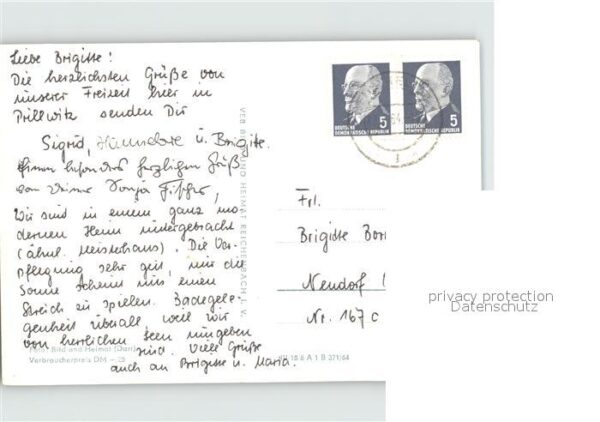 Liebe Brigitte!
Die herzlichsten Grüße von
unserer Freizeit hier in
Prillwitz senden Dir
Sigrid, Hannelore u. Brigitte.
Einen besonders herzlichen Gruß
von Deiner Sonja Fischer,
Wir sind in einem ganz mo-
dernen Heim untergebracht
(ähnl. Meisterhaus). Die Ver-
pflegung sehr gut, nur die
Sonne scheint uns einen
Streich zu spielen. Badegele-
genheit überall, weil wir
von herrlichen Seen umgeben
sind. Viele Grüße
auch an Brigitte u. Maria.
Foto: Bild und Heimat
Verbraucherpreis DM –.25
VEB BILD UND HEIMAT REICHENBACH I. V.
III 18 6 A 1 B 371/64
5
DEUTSCHE
DEMOKRATISCHE REPUBLIK
5
DEUTSCHE
DEMOKRATISCHE REPUBLIK
Frl.
Brigitte
Neudorf
Nr. 167 c
privacy protection
Datenschutz